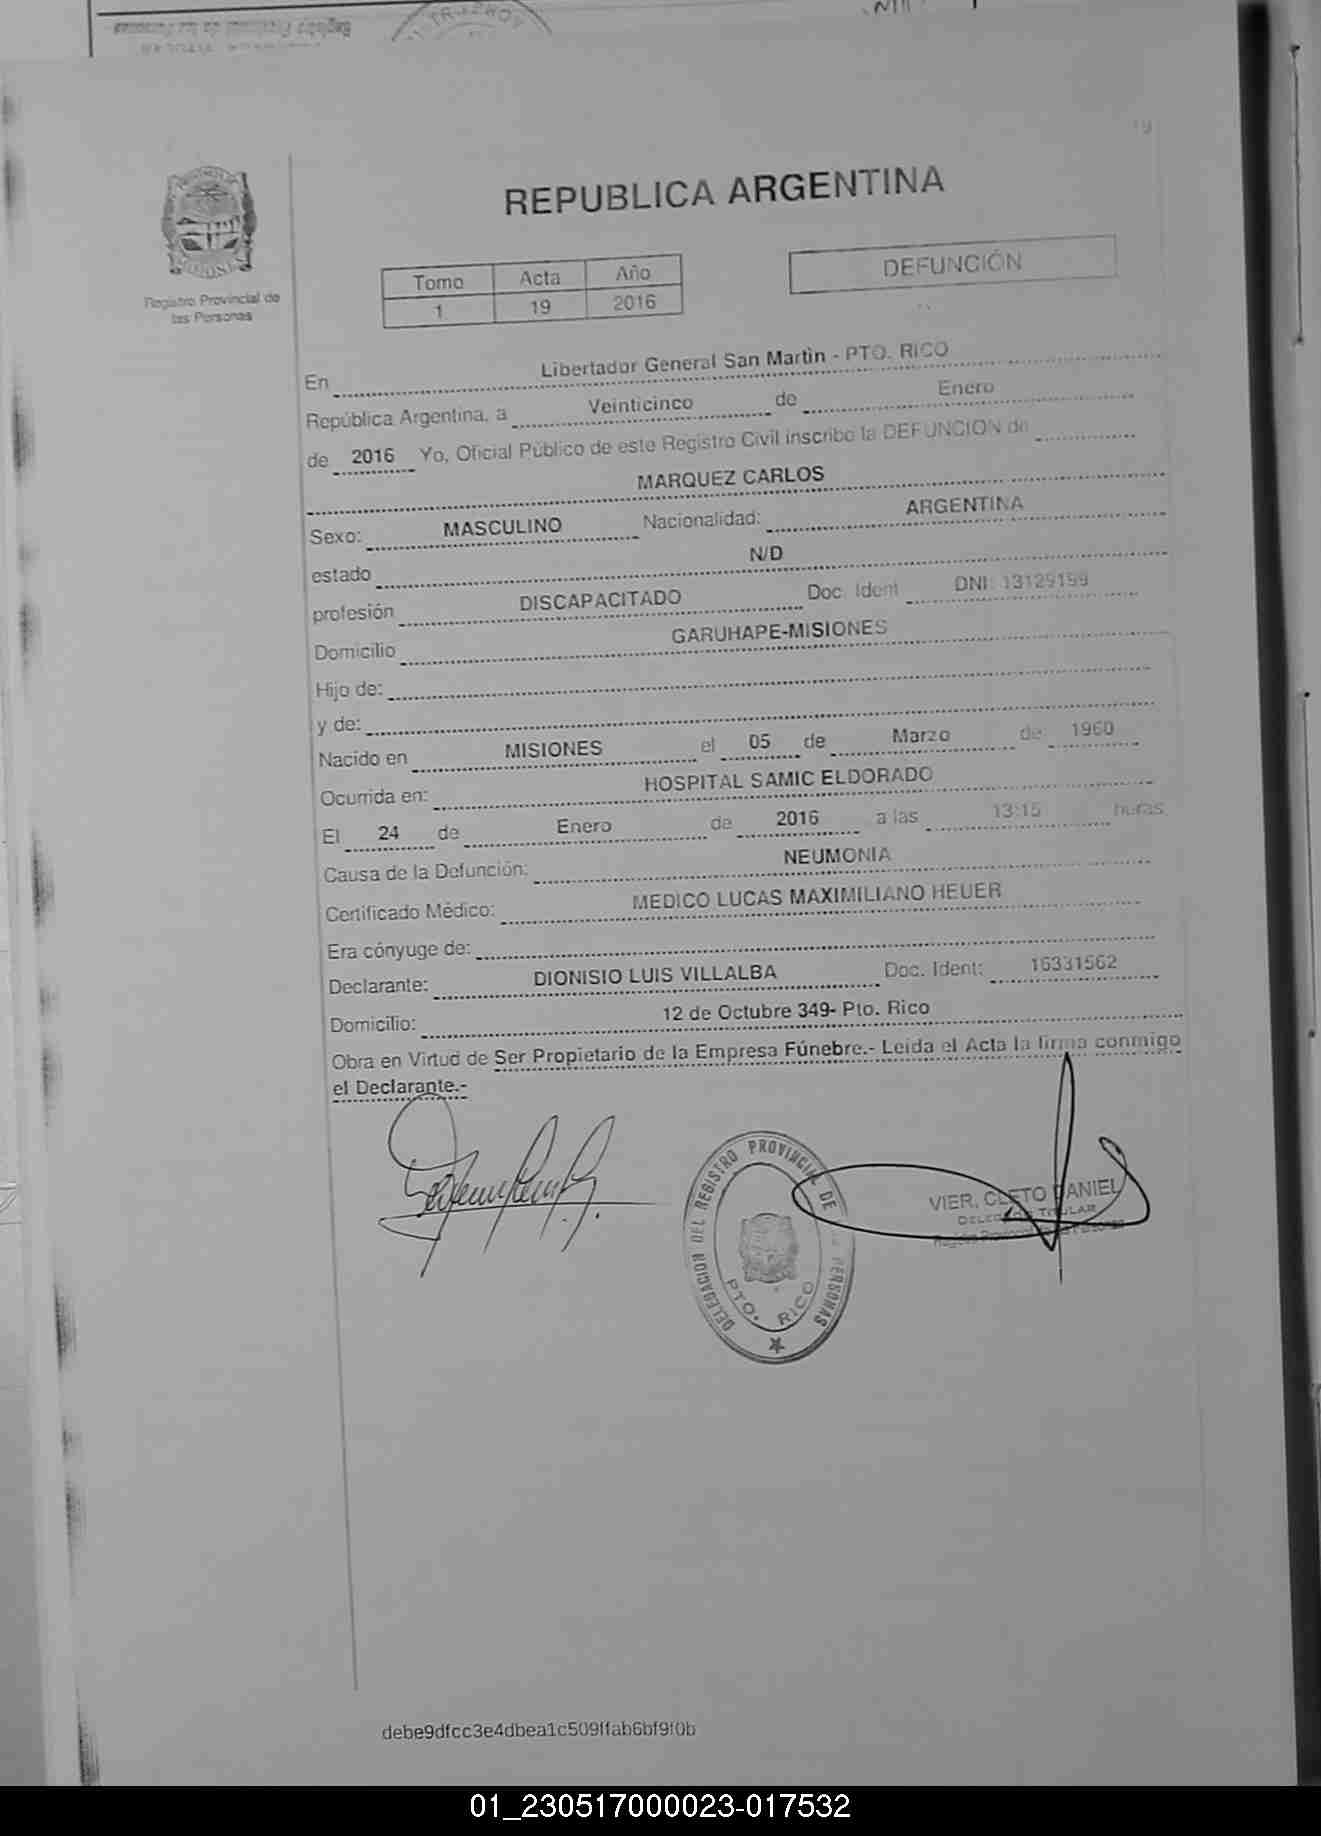 19
REPUBLICA ARGENTINA
Registro Provincial de
las Personas
Tomo Acta Año
1 19 2016
DEFUNCIÓN
En Libertador General San Martin - PTO. RICO
República Argentina, a Veinticinco de Enero
de 2016 Yo, Oficial Público de este Registro Civil inscribo la DEFUNCION de
MARQUEZ CARLOS
Sexo: MASCULINO Nacionalidad: ARGENTINA
estado N/D
profesión DISCAPACITADO Doc. Ident DNI: 13129199
Domicilio GARUHAPE-MISIONES
Hijo de:
y de:
Nacido en MISIONES el 05 de Marzo de 1960
Ocurrida en: HOSPITAL SAMIC ELDORADO
El 24 de Enero de 2016 a las 13:15 horas
Causa de la Defunción: NEUMONIA
Certificado Médico: MEDICO LUCAS MAXIMILIANO HEUER
Era cónyuge de:
Declarante: DIONISIO LUIS VILLALBA Doc. Ident: 16331562
Domicilio: 12 de Octubre 349- Pto. Rico
Obra en Virtud de Ser Propietario de la Empresa Fúnebre.- Leida el Acta la firma conmigo
el Declarante.-
DELEGACION DEL REGISTRO PROVINCIAL DE LAS PERSONAS
PTO. RICO
VIER, CLETO DANIEL
DELEGADO TITULAR
Registro Provincial de las Personas
debe9dfcc3e4dbea1c509ffab6bf9f0b
01_230517000023-017532